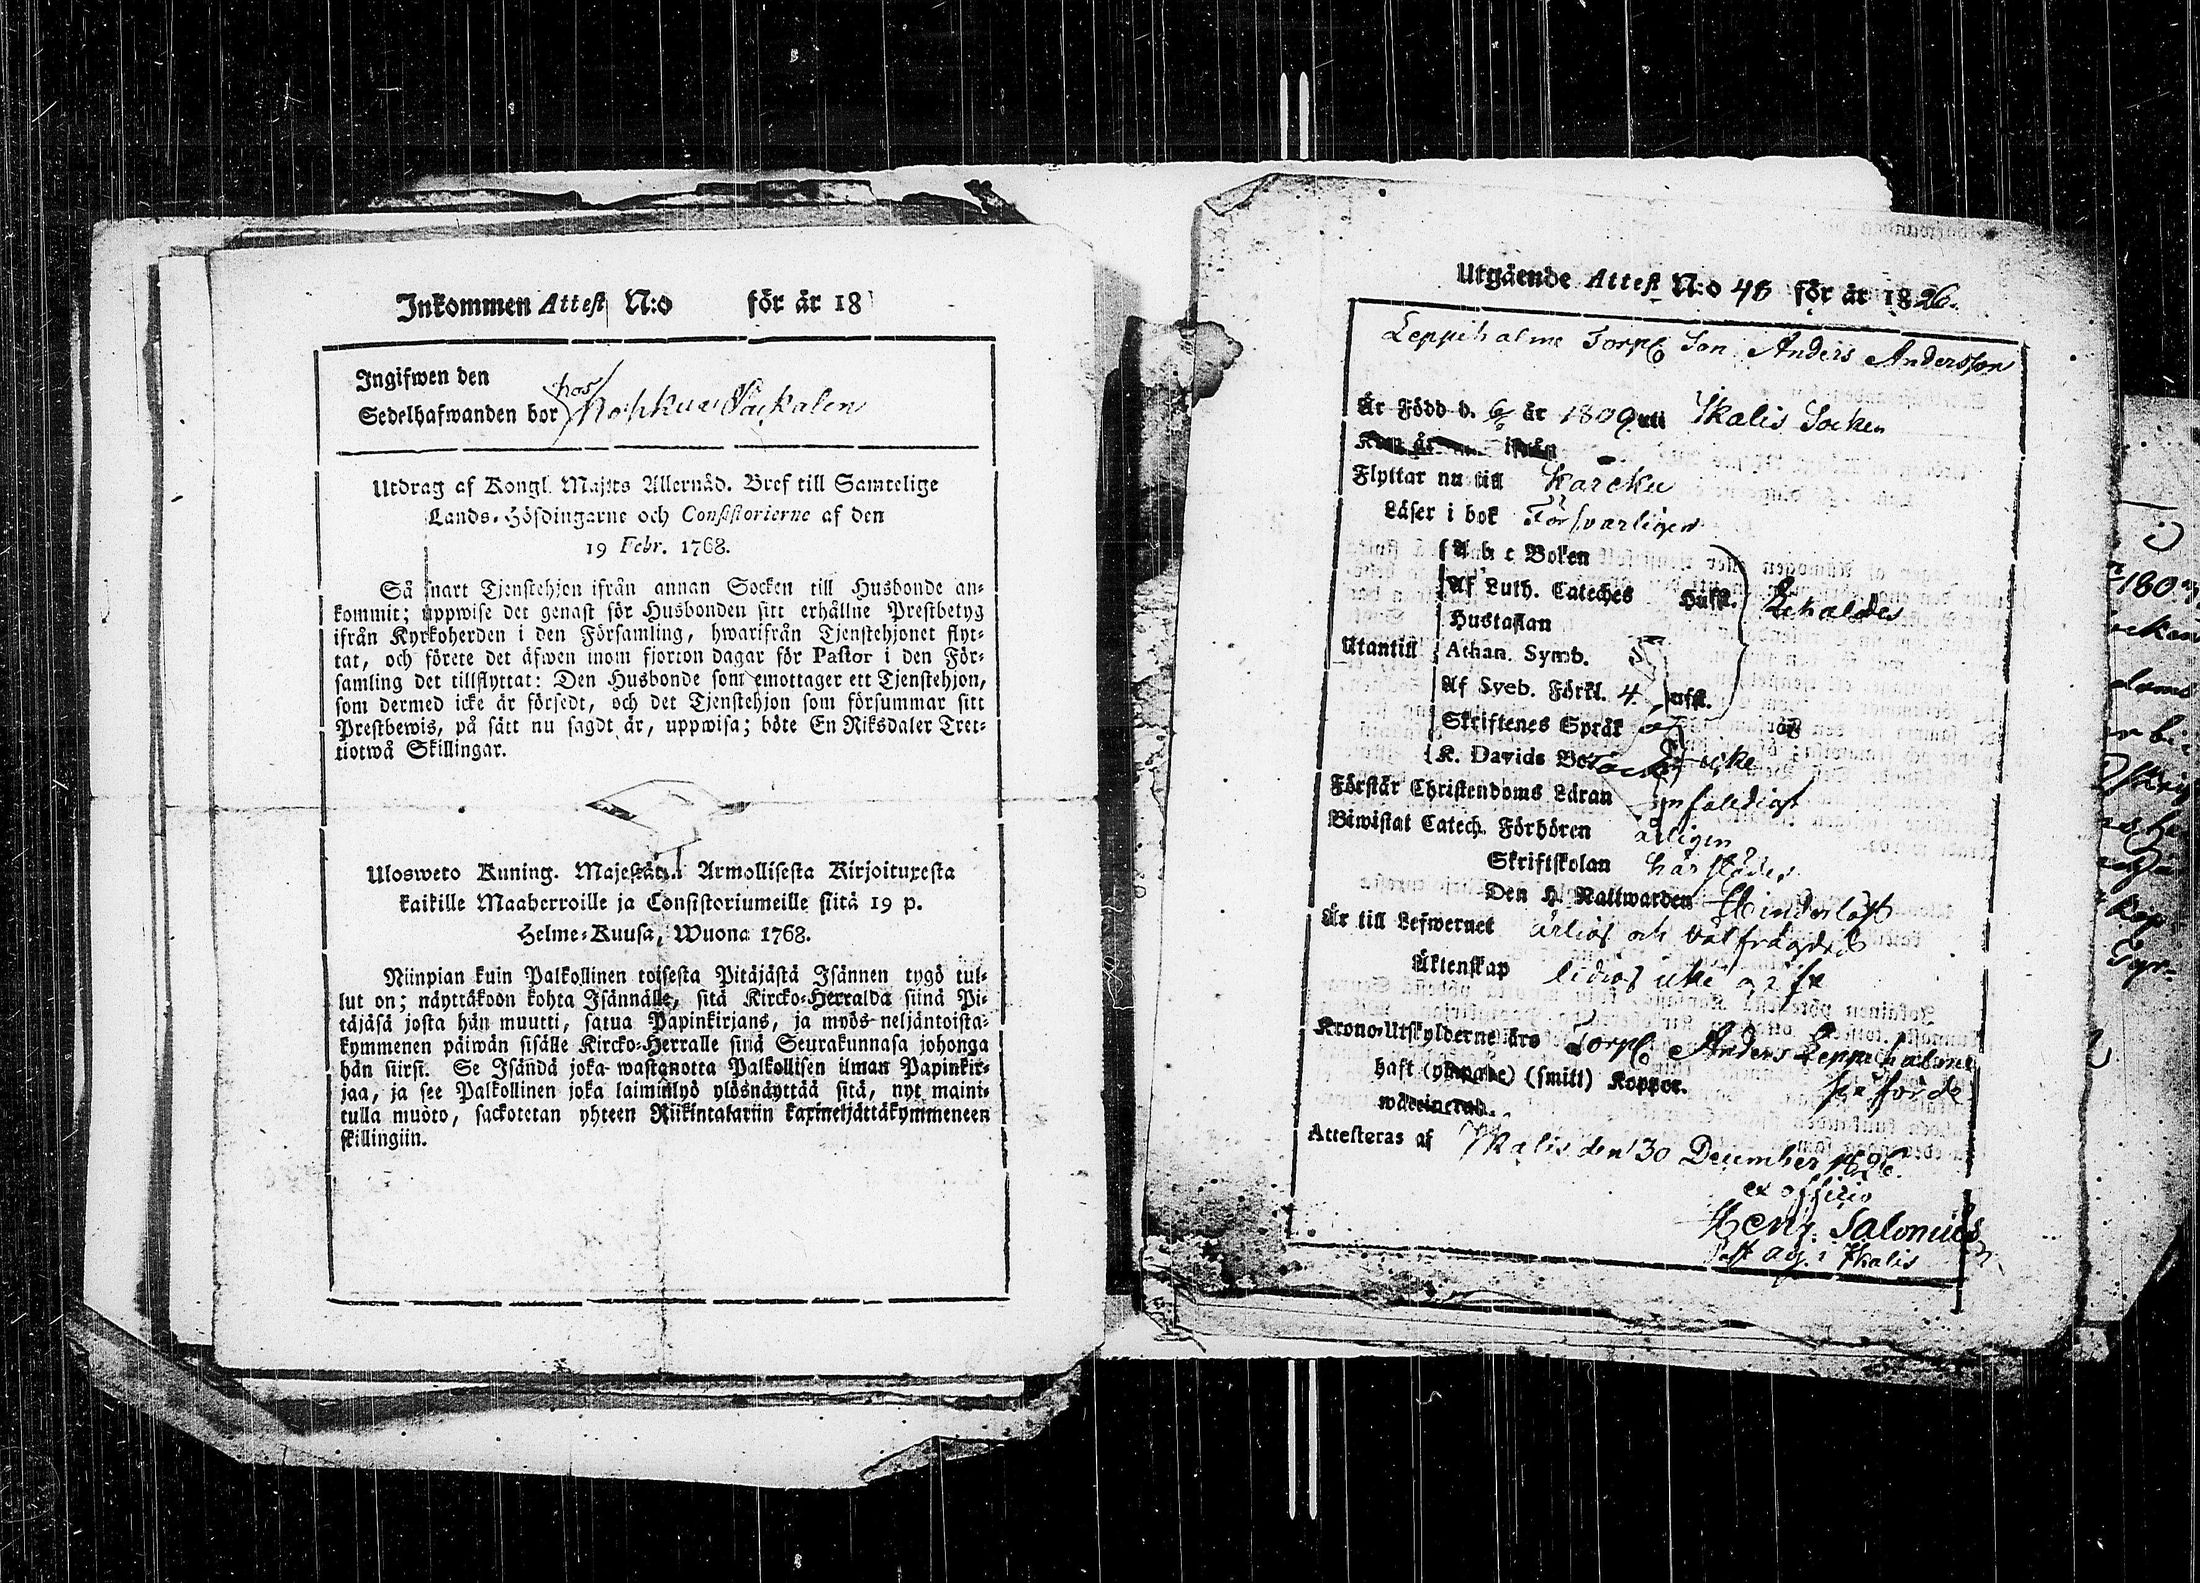 Inkommen Attest N:o för år 18
Ingifwen den
hos
Sedelhafwanden bor
Utdrag af Kongl. Maj:ts Allernåd. Bref till Samtelige
Lands-Höfdingarne och Consistorierne af den
19 Febr. 1768.
Så snart Tjenstehjon ifrån annan Socken till Husbonde an-
kommit; uppwise det genast för Husbonden sitt erhållne Prestbetyg
ifrån Kyrkoherden i den Församling, hwarifrån Tjenstehjonet flyt-
tat, och förete det äfwen inom fjorton dagar för Pastor i den För-
samling det tillflyttat: Den Husbonde som emottager ett Tjenstehjon,
som dermed icke är försedt, och det Tjenstehjon som försummar sitt
Prestbewis, på sätt nu sagdt är, uppwisa; böte En Riksdaler Tret-
tiotwå Skillingar.
Ulosweto Kuning. Majestätin Armollisesta Kirjoituxesta
kaikille Maaherroille ja Consistoriumeille siitä 19 p.
Helme-Kuusa, Wuona 1768.
Niinpian kuin Palkollinen toisesta Pitäjästä Isännen tygö tul-
lut on; näyttäköön kohta Isännälle, sitä Kircko-Herralda siinä Pi-
täjäsä josta hän muutti, satua Papinkirjans, ja myös neljäntoista-
kymmenen päiwän sisälle Kircko-Herralle siinä Seurakunnasa johonga
hän siirsi. Se Isändä joka wastanotta Palkollisen ilman Papinkir-
jaa, ja see Palkollinen joka laiminlyö ylösnäyttää sitä, nyt maini-
tulla muoto, sackotetan yhteen Riikintalariin kaxineljättäkymmeneen
skillingiin.
Utgående Attest N:o 48 för år 1826.
Leppihalme Torp Son Anders Andersson
Är Född d. 6 år 1809 uti Ikalis Socken
Flyttar nu till Karcku
Läser i bok Försvarligen
A b c Boken
Af Luth. Cateches Hufst.
Hustaflan
Utantill Athan. Symb. Behaldes
Af Sveb. Förkl. 4. Hufst.
Skriftenes Språk
K. Davids Bot icke
Förstår Christendoms Läran enfaledigt
Biwistat Catech. Förhören årligen
Skriftskolan härstädes
Den H. Nattwarden Hinderlöst
Är till Lefwernet ärlig och välfrägdad
Äktenskap ledig icke
Krono-Utskylderne äro Torp Anders Leppihalme
påförde
haft (smitt) Koppor.
Attesteras af Ikalis den 30 December 1826.
ex officio
Henr. Salonius
i Ikalis